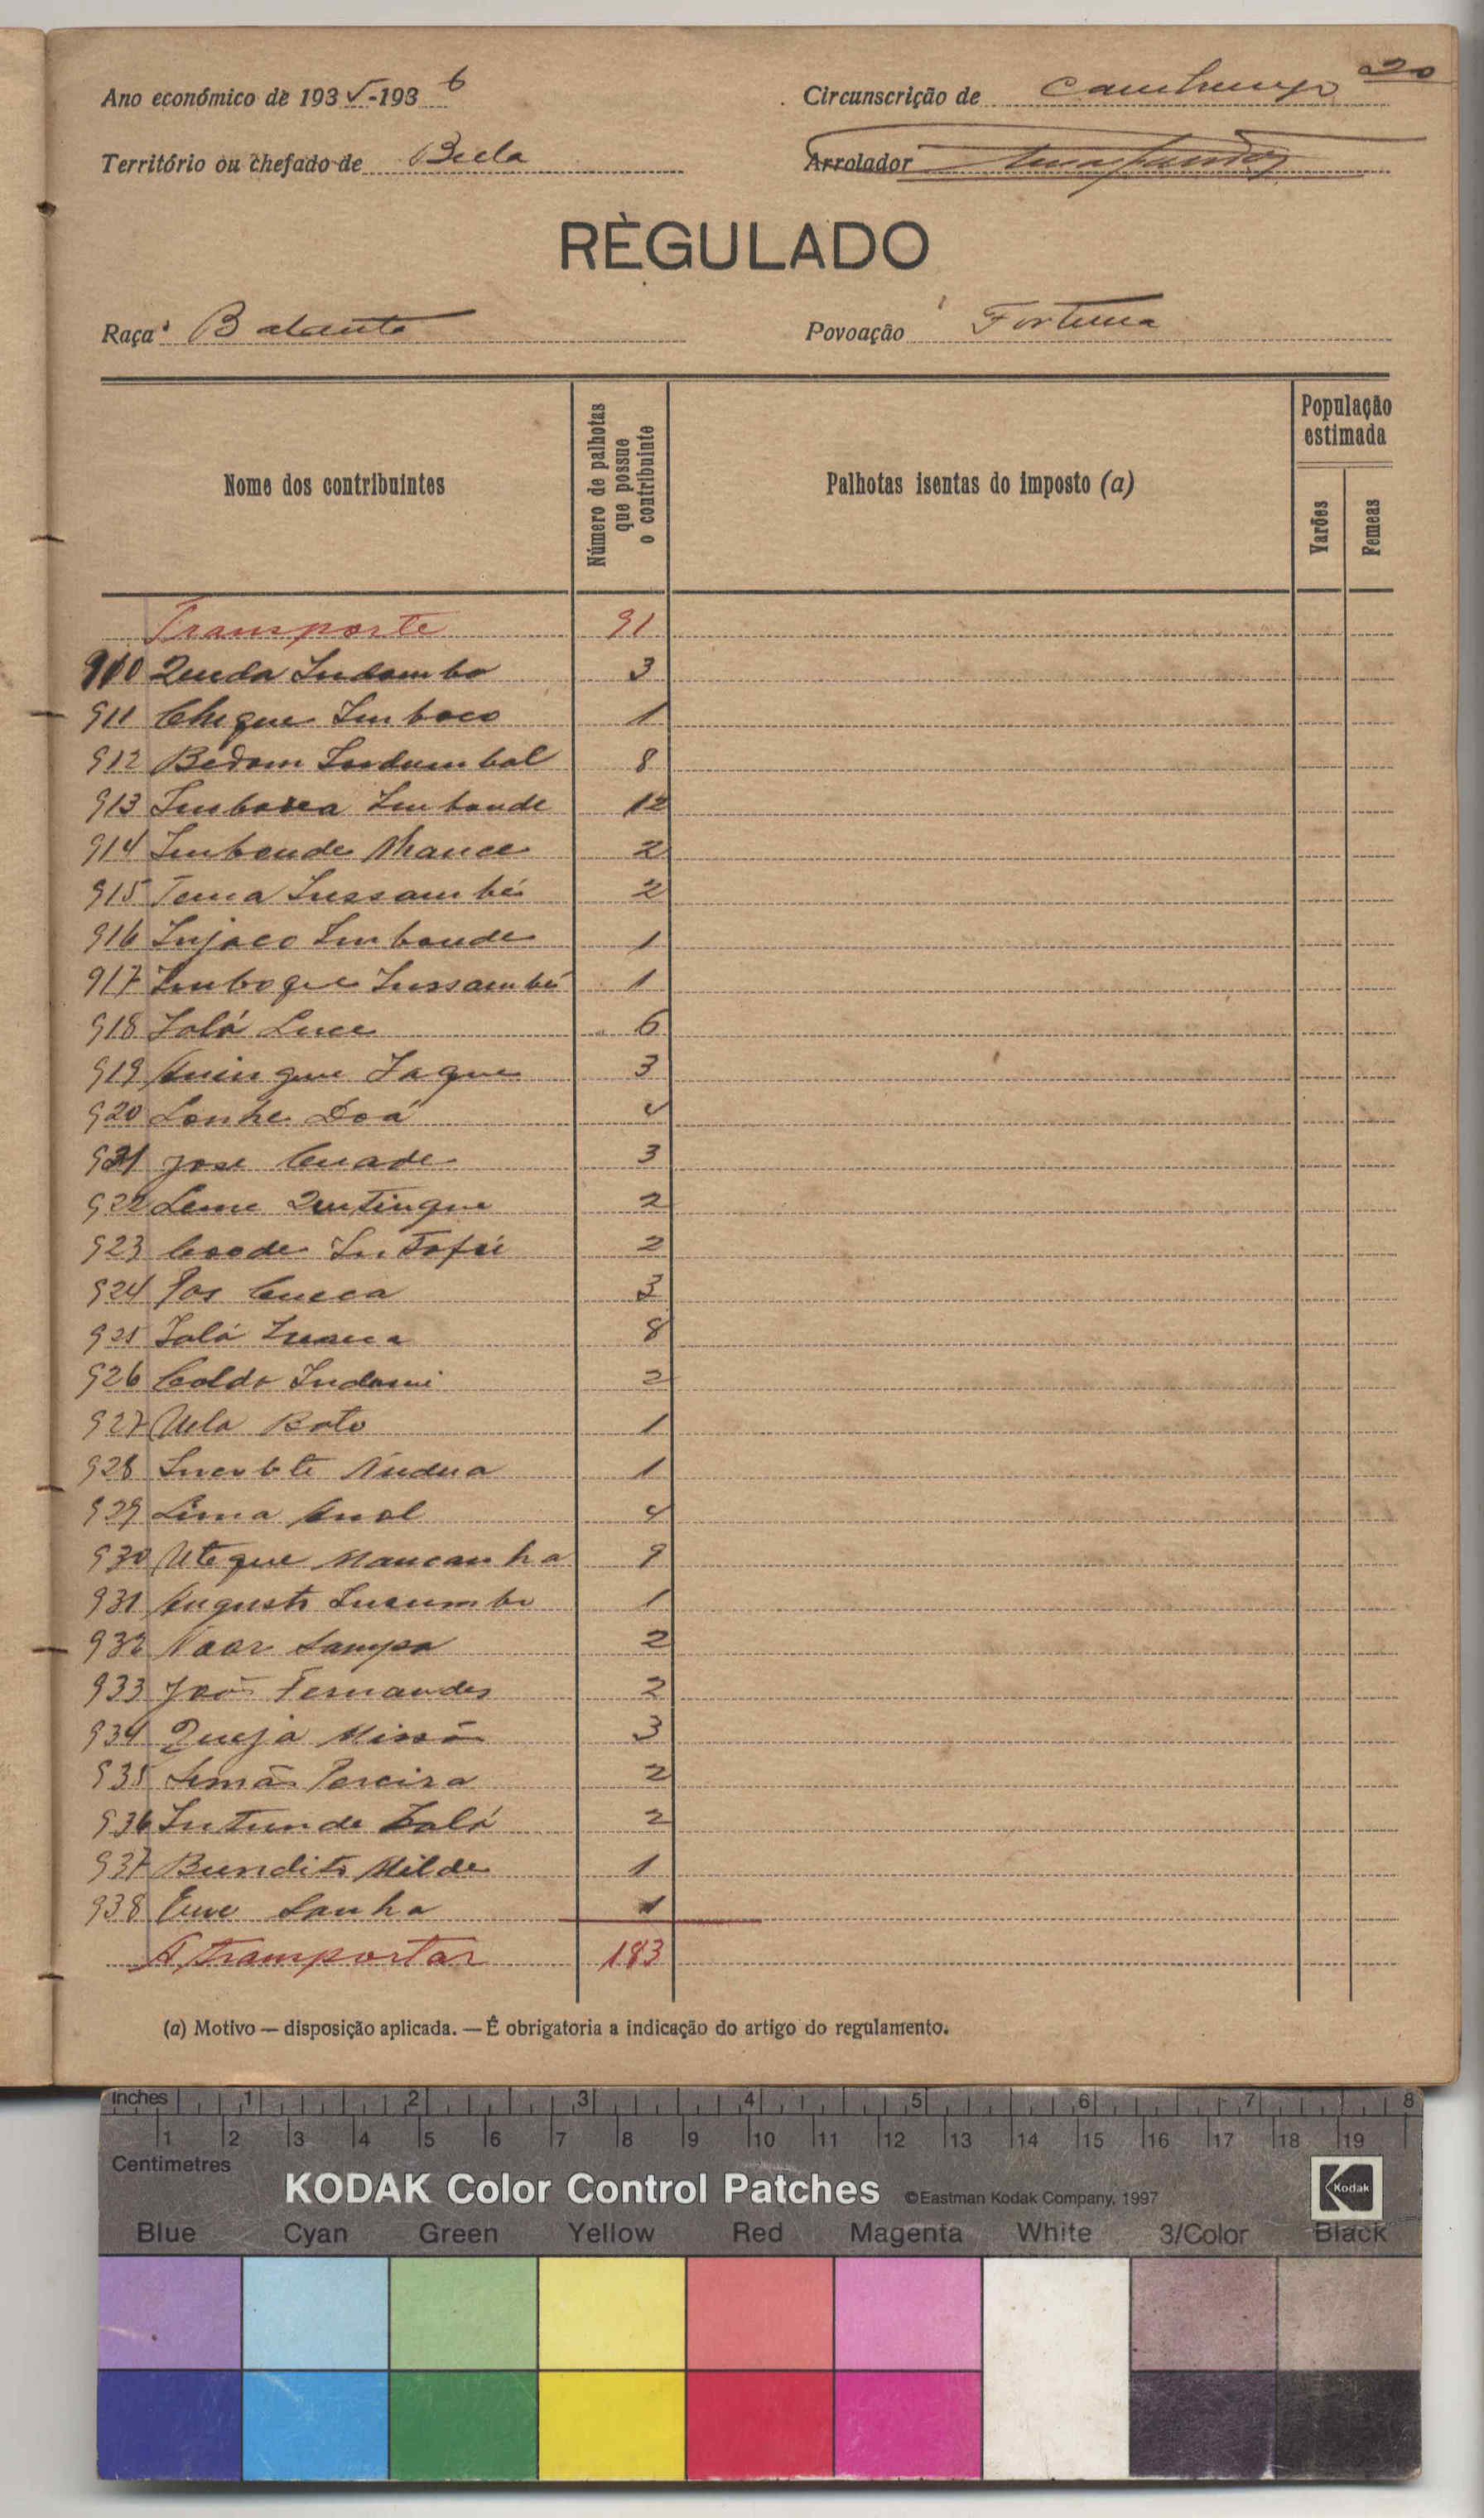 20
Ano económico de 1935-1936
Circunscrição de
Território ou chefado de Biela
Arrolador
RÈGULADO
Raça Balanta
Povoação Fortuna
Nome dos contribuintes
Número de palhotas que possue o contribuinte
Palhotas isentas do imposto (a)
População estimada
Varões
Femeas
Transporte 91
910 Quda Indambo 3
911 Chique Imboco 1
912 Bedam Indumbal 8
913 Imbunde 12
914 Imbunde 2
915 Tema Inssambé 2
916 Injaco Imbunde 1
917 Imboque Inssambé 1
918 Jalá Luce 6
919 Jaque 3
920 Lonhe Doá 4
921 José Cuade 3
922 2
923 Coode 2
924 Pos Cueca 3
925 Jalá 8
926 Coldo Indami 2
927 Uela Boto 1
928 1
929 Lima 4
930 Uteque Mancanha 9
931 Augusto Incumbo 1
932 Naar Sampa 2
933 João Fernandes 2
934 Queja Missõ 3
935 Simão Pereira 2
936 Intunde Jaló 2
937 Bundito Milde 1
938 Sanha 1
A transportar 183
(a) Motivo — disposição aplicada. — É obrigatoria a indicação do artigo do regulamento.
inches 1 2 3 4 5 6 7 8
1 2 3 4 5 6 7 8 9 10 11 12 13 14 15 16 17 18 19
Centimetres
KODAK Color Control Patches ©Eastman Kodak Company, 1997 Kodak
Blue Cyan Green Yellow Red Magenta White 3/Color Black